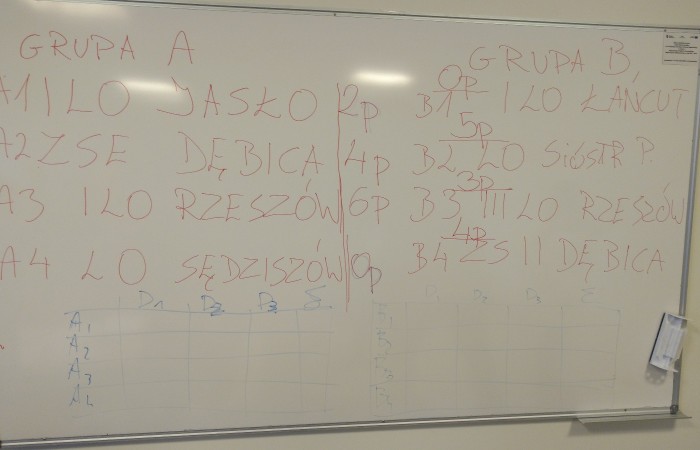 GRUPA A
A1 I LO JASŁO 2p
A2 ZSE DĘBICA 4p
A3 I LO RZESZÓW 6p
A4 LO SĘDZISZÓW 0p
GRUPA B
0p
B1 I LO ŁAŃCUT
5p
B2 LO SióSTR P.
3p
B3 III LO RZESZÓW
4p
B4 ZS II DĘBICA
D1 D2 D3 Σ
A1
A2
A3
A4
D2 D3 Σ